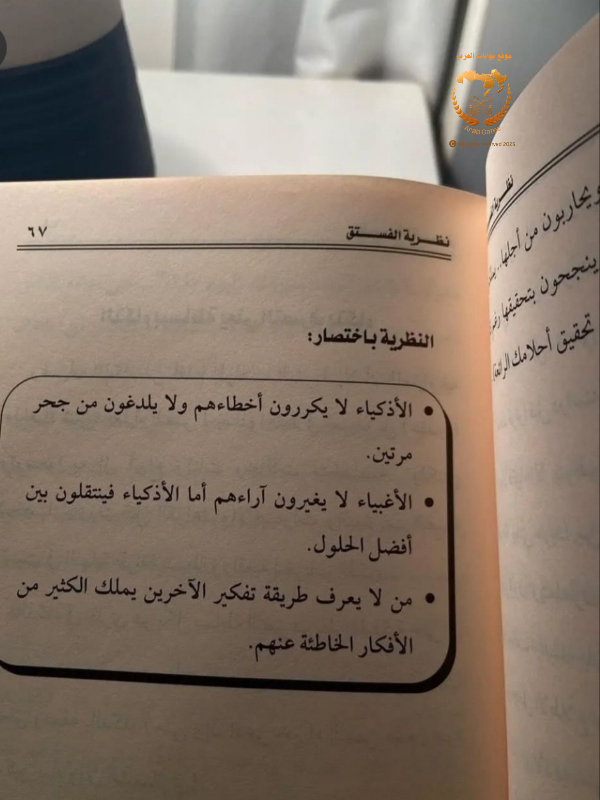 موقع بوابات العرب
Arab Gates
نظرية الفستق
٦٧
النظرية باختصار:
• الأذكياء لا يكررون أخطاءهم ولا يلدغون من جحر
مرتين.
• الأغبياء لا يغيرون آراءهم أما الأذكياء فينتقلون بين
أفضل الحلول.
• من لا يعرف طريقة تفكير الآخرين يملك الكثير من
الأفكار الخاطئة عنهم.
ويحاربون من أجلها..
ينجحون بتحقيقها
تحقيق أحلامك الرائعة